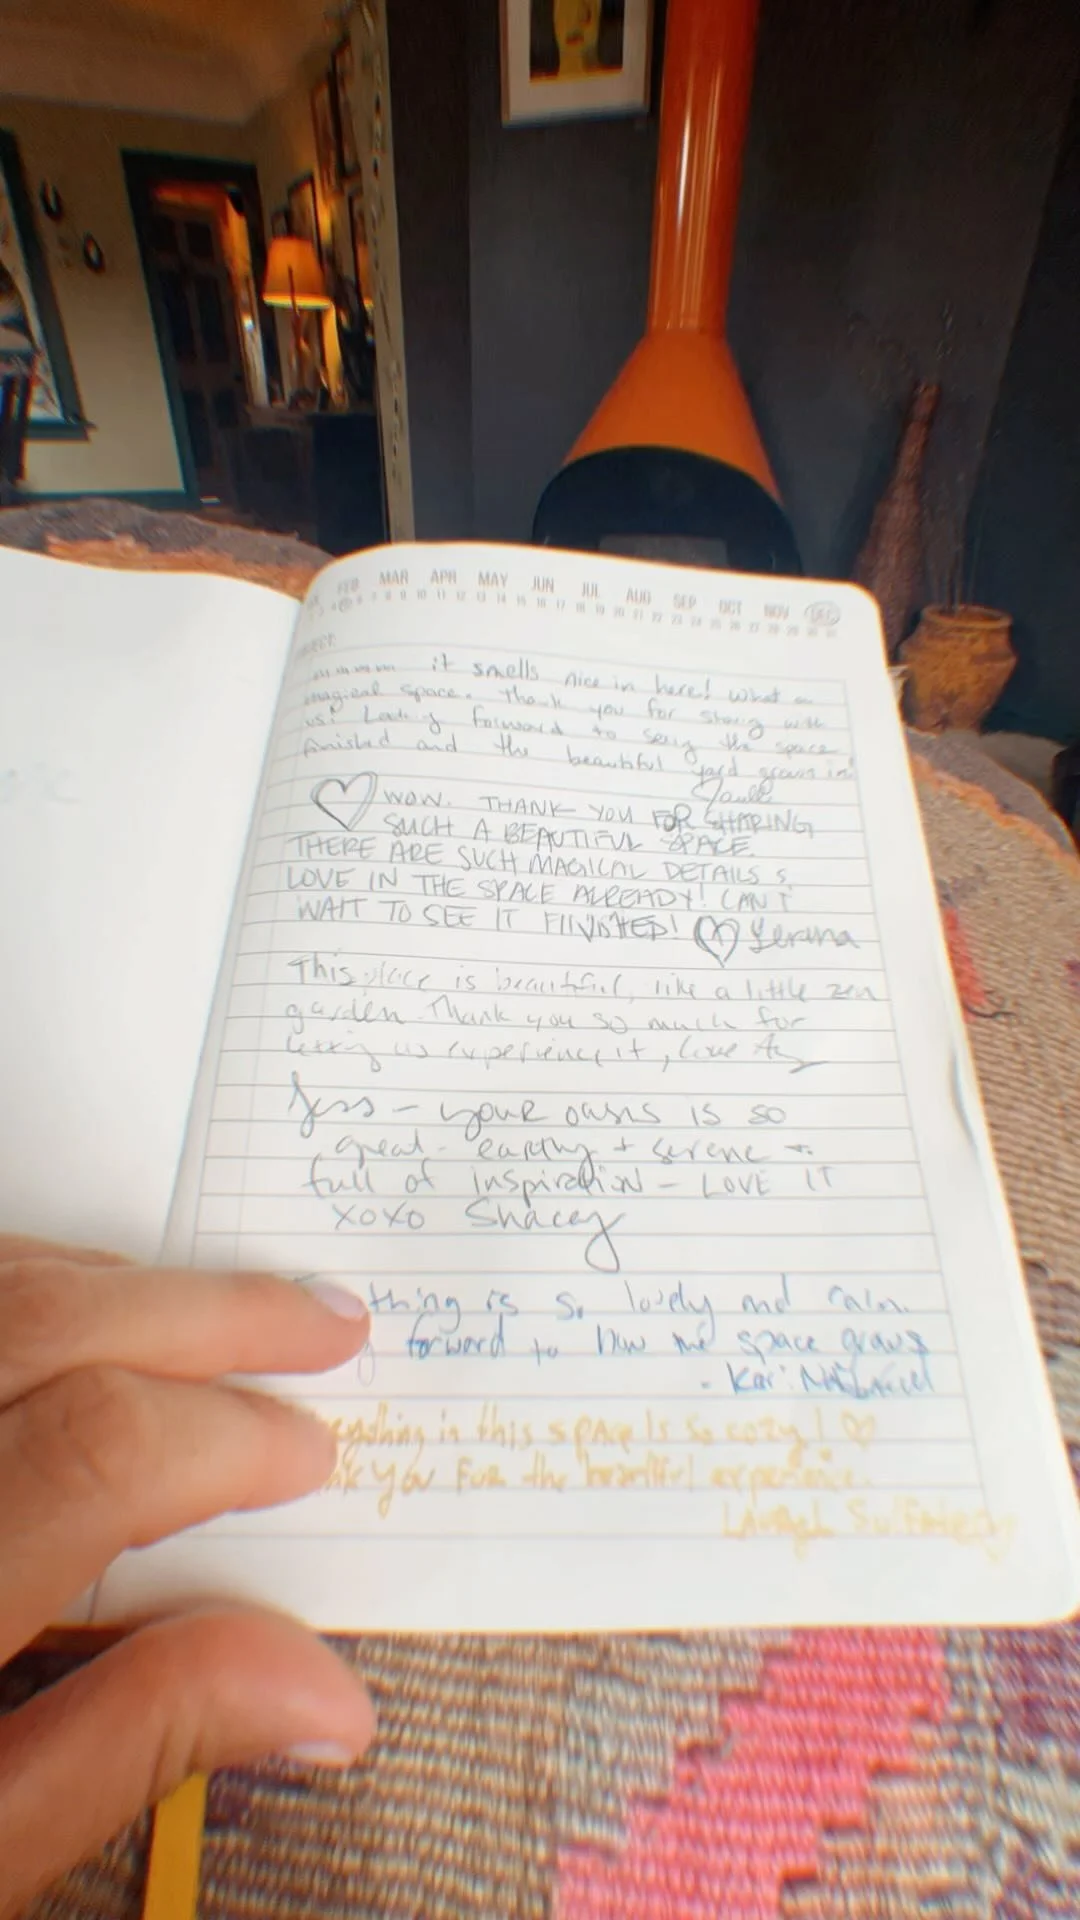 FEB MAR APR MAY JUN JUL AUG SEP OCT NOV DEC
7 8 9 10 11 12 13 14 15 16 17 18 19 20 21 22 23 24 25 26 27 28 29 30 31
mmmm it smells nice in here! What a
magical space. Thank you for sharing with
us! Looking forward to seeing the space
finished and the beautiful yard grown in!
WOW. THANK YOU FOR SHARING
SUCH A BEAUTIFUL SPACE.
THERE ARE SUCH MAGICAL DETAILS &
LOVE IN THE SPACE ALREADY! CAN'T
WAIT TO SEE IT FIINISHED!
This place is beautiful, like a little zen
garden. Thank you so much for
letting us experience it, love
Jess – your oasis is so
great – earthy + serene +
full of inspiration – LOVE IT
XOXO Shacey
thing is so lovely and calm.
forward to how the space grows
- Kari
in this space is so cozy!
you for the beautiful experience.